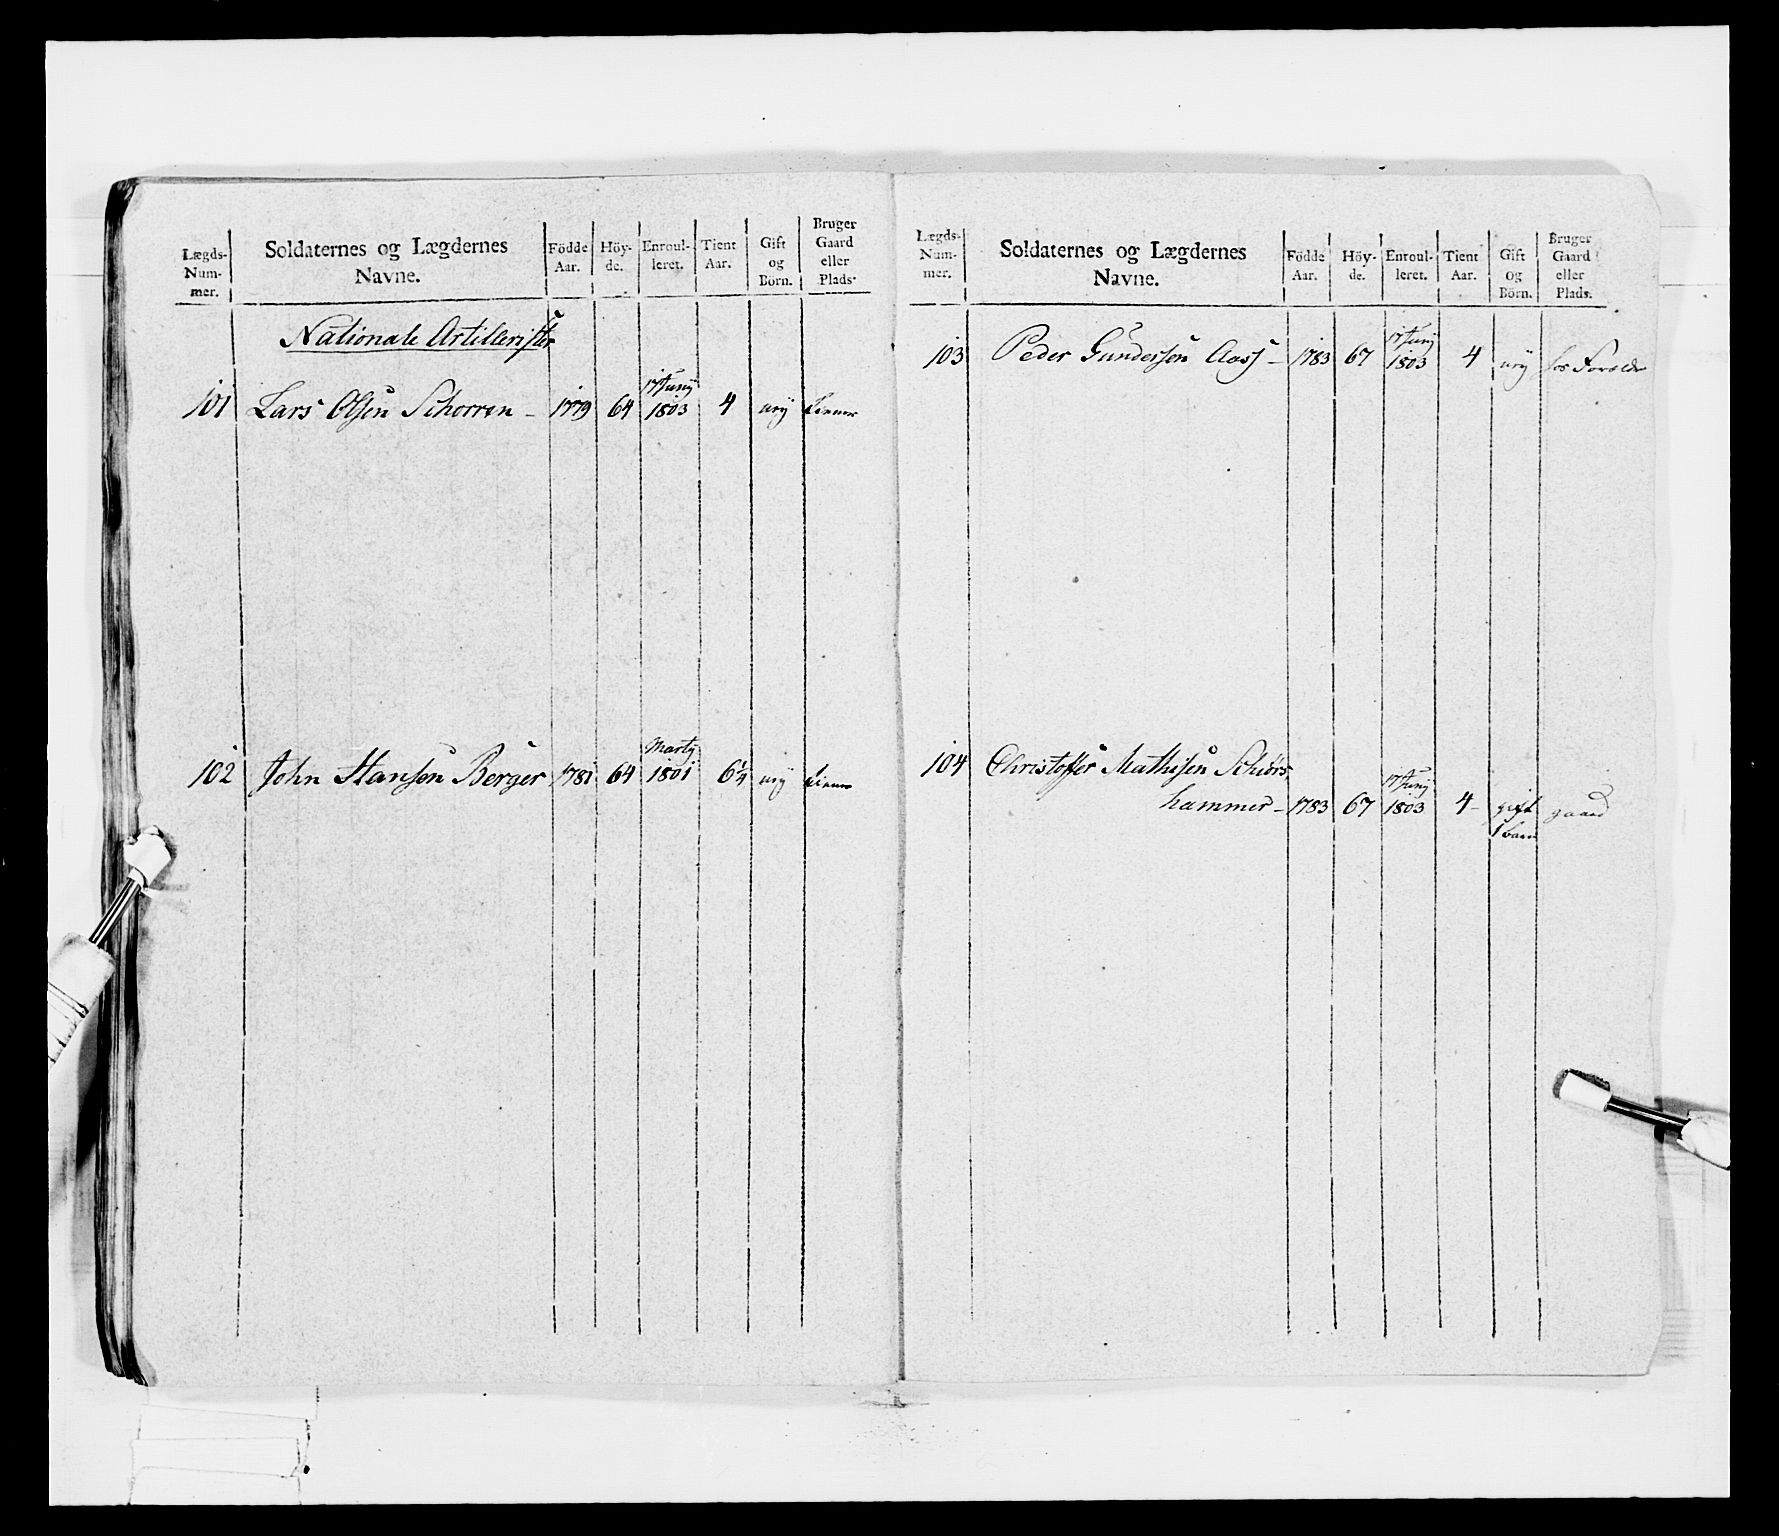 Lægds-Num-mer. Soldaternes og Lægdernes Navne. Födde Aar. Höy-de. Enroul-leret. Tient Aar. Gift og Börn. Bruger Gaard eller Plads.
Nationale Artillerister
17 Juny
101 Lars Olsen Schorren - 1779 64 1803 4 ury tiener
Marty
102 John Hansen Berger 1781 64 1801 6¼ ury tiener
Lægds-Num-mer. Soldaternes og Lægdernes Navne. Födde Aar. Höy-de. Enroul-leret. Tient Aar. Gift og Börn. Bruger Gaard eller Plads.
17 Juny
103 Peder Gundersen Aass - 1783 67 1803 4 ury hos Forælde
104 Christoffer Mathisen Schiørs
17 Juny
hammer - 1783 67 1803 4 - gift gaard
1 barn